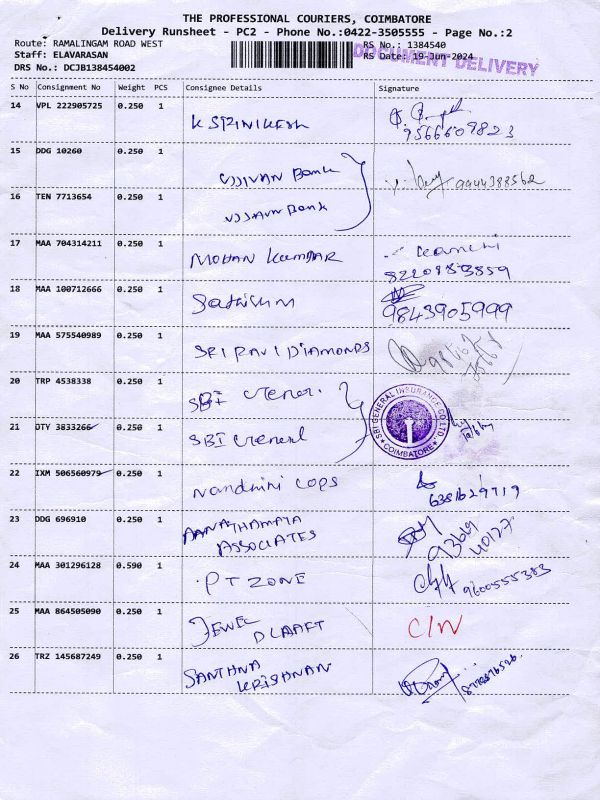 THE PROFESSIONAL COURIERS, COIMBATORE
Delivery Runsheet - PC2 - Phone No.:0422-3505555 - Page No.:2
Route: RAMALINGAM ROAD WEST
RS No.: 1384540
Staff: ELAVARASAN
RS Date: 19-Jun-2024
DOCUMENT DELIVERY
DRS No.: DCJB138454002
S No Consignment No Weight PCS Consignee Details Signature
14 VPL 222905725 0.250 1 K SRINIKESH
9566609823
15 DDG 10260 0.250 1 UJJIVAN Bank
9944388562
16 TEN 7713654 0.250 1 UJJAVN Bank
17 MAA 704314211 0.250 1 MOHAN KUMAR
18 MAA 100712666 0.250 1 Sathishm
9843905999
19 MAA 575540989 0.250 1 SRI RAVI DIAMONDS
20 TRP 4538338 0.250 1 SBI General
SBI GENERAL INSURANCE CO. LTD. COIMBATORE
21 OTY 3833266 0.250 1 SBI General
22 IXM 506560979 0.250 1 Nandhini Cops
6381629719
23 DDG 696910 0.250 1
ASSOCIATES
93619
40177
24 MAA 301296128 0.590 1 PT ZONE
9600555383
25 MAA 864505090 0.250 1 JEWEL
C/N
26 TRZ 145687249 0.250 1 SANTHNA
KRISHNAN